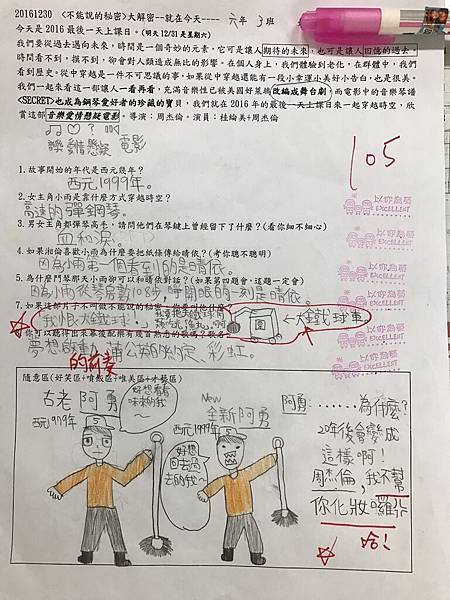 20161230 《不能說的秘密》大解密--就在今天---- 六年 3 班
今天是 2016 最後一天上課日。(明天 12/31 是星期六)
我們要從過去邁向未來，時間是一個奇妙的元素，它可是讓人期待的未來，也可是讓人回憶的過去，
時間看不到，摸不到，卻會對人類造成無比的影響。在個人身上，我們體驗到老化，在群體中，我們
看到歷史。從中穿越是一件不可思議的事，如果從中穿越還能有一段小幸運小美好小告白，也是很美。
我們一起來看這一部讓人一看再看，充滿音樂性也被美國好萊塢改編成舞台劇，而電影中的音樂琴譜
<SECRET>也成為鋼琴愛好者的珍藏的寶貝，我們就在 2016 年的最後一天上課日來一起穿越時空，欣
賞這部音樂愛情懸疑電影。導演：周杰倫。演員：桂綸美+周杰倫
音樂愛情懸疑 電影
105
1.故事開始的年代是西元幾年？
西元1999年。
2.女主角小雨是靠什麼方式穿越時空？
高速的彈鋼琴。
3.男女主角都彈琴高手，請問他們在琴鍵上曾經留下了什麼？(看你細不細心)
血和淚。
4.如果湘倫喜歡小雨為什麼要把紙條傳給晴依？(考你聰不聰明)
因為小雨第一個看到的是晴依。
5.為什麼鬥琴那天小雨卻可以和晴依對話？(如果第四題會，這題一定會)
因為小雨從琴房數108步，睜開眼的一刻是晴依。
7.如果這部片子不叫做不能說的秘密
「我恨大鐵球！」
←大鐵球車
夢想啟動、蒲公英的約定、彩虹。
的前奏
以你為榮
EXCELLENT
以你為榮
EXCELLENT
以你為榮
EXCELLENT
以你為榮
EXCELLENT
以你為榮
EXCELLENT
以你為榮
EXCELLENT
隨意區(好笑區+噴飯區+唯美區+才藝區)
古老 阿勇
西元1979年
好想看看未來的我～
New
全新阿勇
西元1999年
好想回去過去的我～
阿勇：……為什麼？
20年後會變成
這樣啊！
周杰倫，我不幫
你化妝囉
哈！